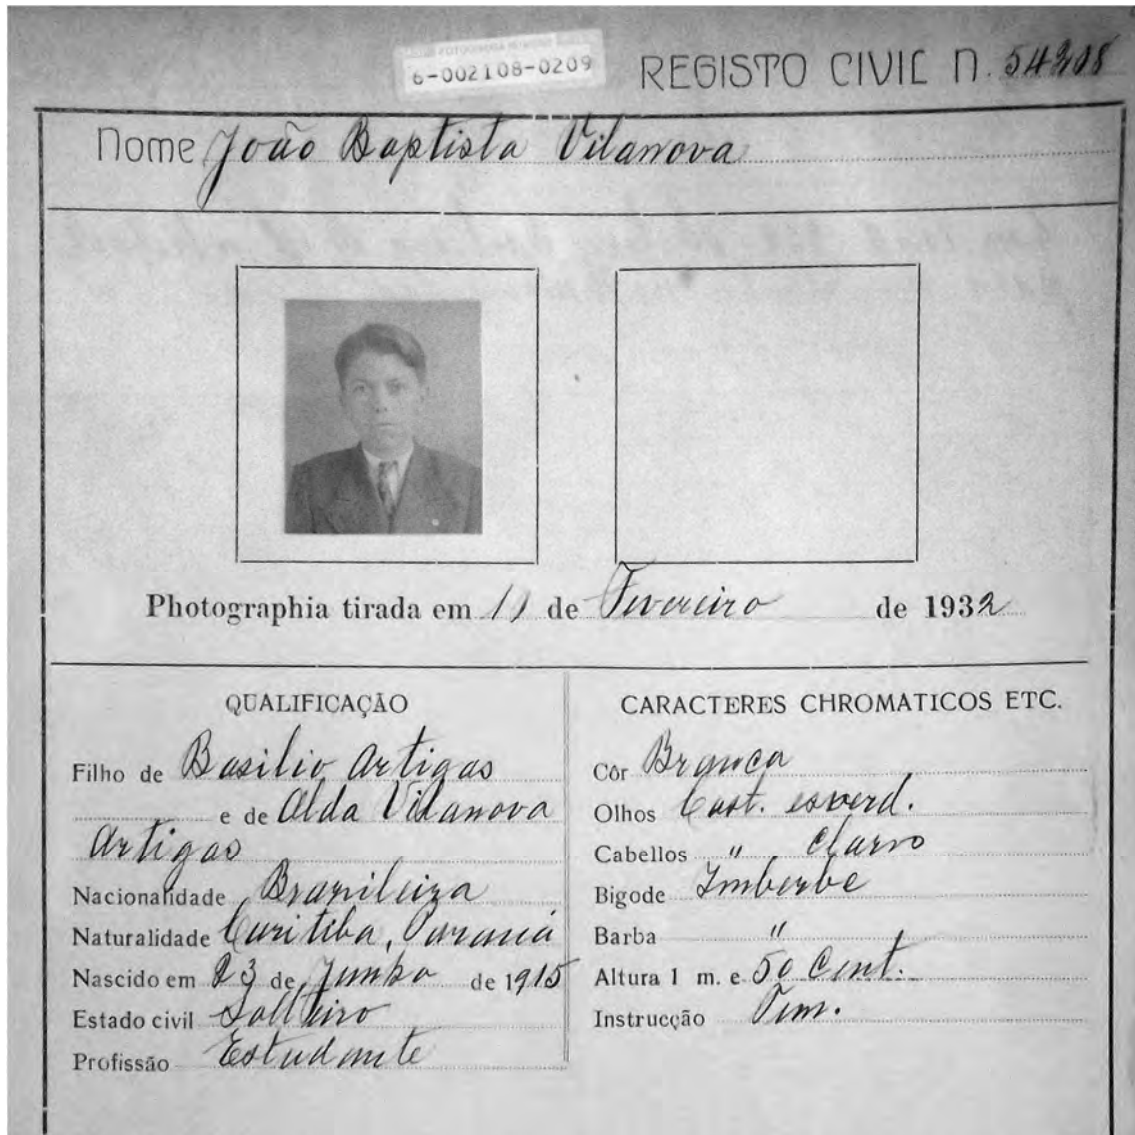 6-002108-0209
REGISTO CIVIL N. 54208
Nome João Baptista Vilanova
Photographia tirada em 11 de Fevereiro de 1932
QUALIFICAÇÃO
Filho de Basilio Artigas
e de Alda Vilanova
Artigas
Nacionalidade Brasileira
Naturalidade Curitiba, Paraná
Nascido em 23 de Junho de 1915
Estado civil Solteiro
Profissão Estudante
CARACTERES CHROMATICOS ETC.
Côr Branca
Olhos Cast. esverd.
Cabellos " claro
Bigode Imberbe
Barba "
Altura 1 m. e 50 Cent.
Instrucção